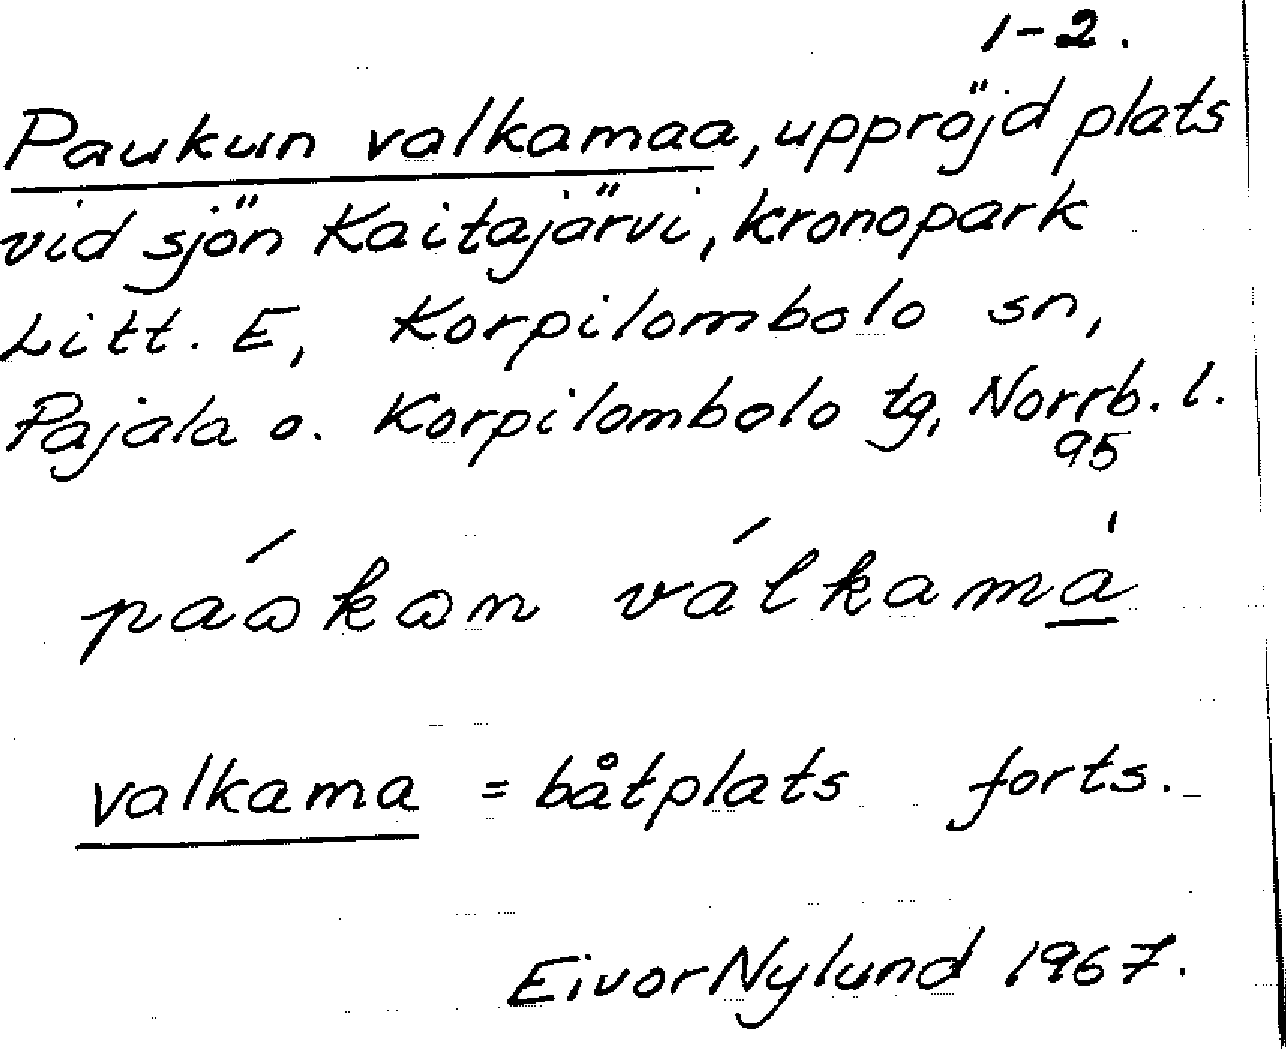 1-2.
Paukun valkamaa, uppröjd plats
vid sjön Kaitajärvi, kronopark
Litt. E, Korpilombolo sn,
Pajala o. Korpilombolo tg, Norrb. l.
95
páωkωn válkamà
valkama = båtplats forts.
Eivor Nylund 1967.